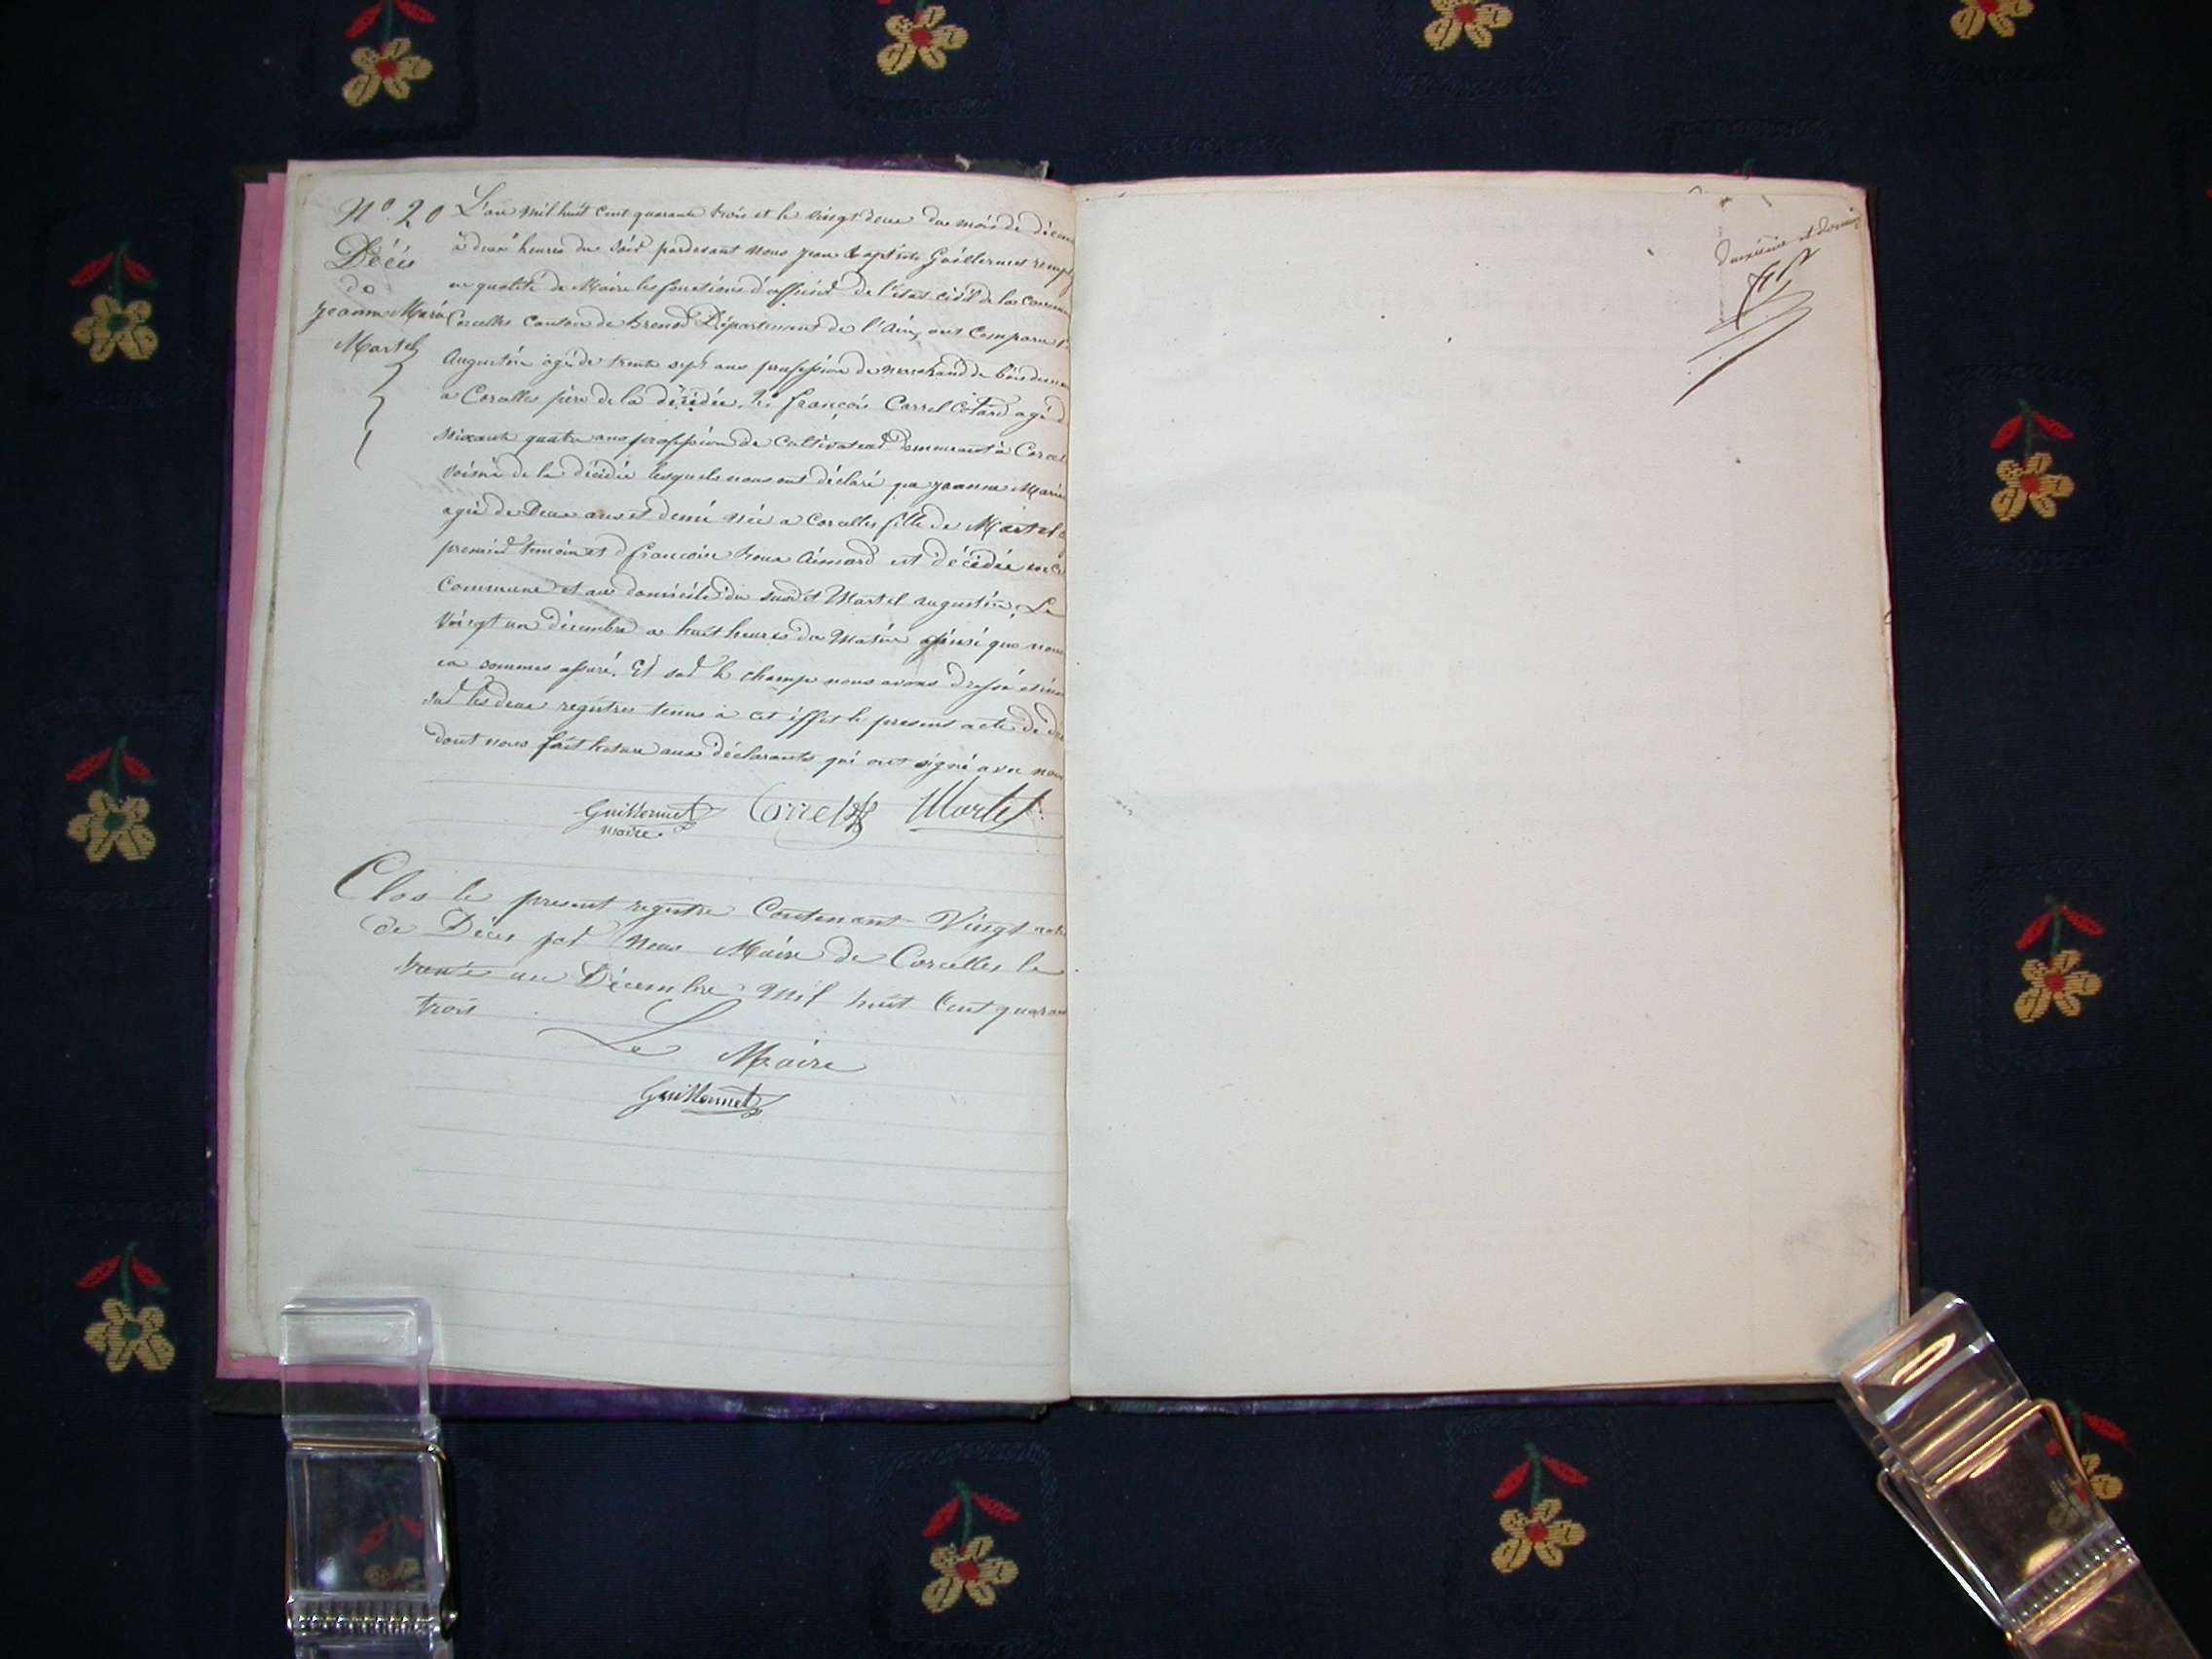 N.º 20
Décès
de
Jeanne Marie
Martel
L'an mil huit cent quarante trois et le vingt deux du mois de décem
à deux heures du soir pardevant nous jean baptiste Guillermet rempl
en qualité de Maire les fonctions d'officier de l'état civil de la commune
Corcelles canton de brenod Département de l'Ain, ont comparu
Augustin agé de trente sept ans profession de marchand de bois demeu
a Corcelles père de la décédée, françois Carrel Cotard agé d
soixante quatre ans profession de Cultivateur demeurant à Corcel
voisin de la décédée lesquels nous ont déclaré que jeanne Marie
agée de Deux ans et demi née a Corcelles fille de Martel
premier temoin et françoise aimard est décédée en ce
Commune et au domicile du susdit Martel augustin, Le
vingt un décembre a huit heures du matin ainsi que nous
en sommes assuré. Et sur le champ nous avons dressé et ins
sur les deux registres tenus à cet effet le present acte de dé
dont nous fait lecture aux déclarants qui ont signé avec nous
Guillermet Carrel Martel
maire
Clos le present registre Contenant Vingt actes
de Décès par Nous Maire de Corcelles le
trente un Décembre Mil huit Cent quaran
trois
Le Maire
Guillermet
deuxième et dernier